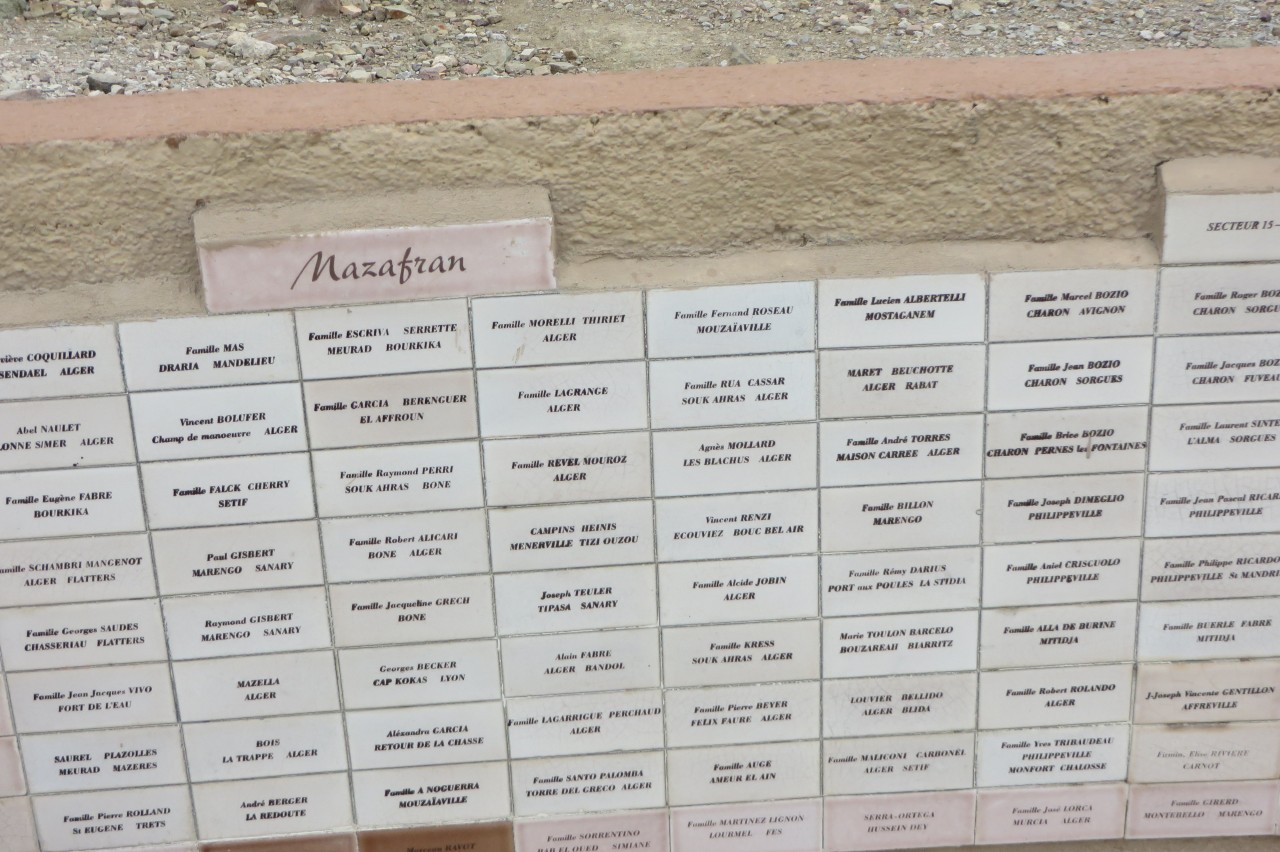 Mazafran
SECTEUR 15
COQUILLARD
SENDAEL ALGER
Famille MAS
DRARIA MANDELIEU
Famille ESCRIVA SERRETTE
MEURAD BOURKIKA
Famille MORELLI THIRIET
ALGER
Famille Fernand ROSEAU
MOUZAÏAVILLE
Famille Lucien ALBERTELLI
MOSTAGANEM
Famille Marcel BOZIO
CHARON AVIGNON
Famille Roger
CHARON
Abel NAULET
SIMER ALGER
Vincent BOLUFER
Champ de manoeuvre ALGER
Famille GARCIA BERENGUER
EL AFFROUN
Famille LAGRANGE
ALGER
Famille RUA CASSAR
SOUK AHRAS ALGER
MARET BEUCHOTTE
ALGER RABAT
Famille Jean BOZIO
CHARON SORGUES
Famille Jacques
CHARON
Famille Eugène FABRE
BOURKIKA
Famille FALCK CHERRY
SETIF
Famille Raymond PERRI
SOUK AHRAS BONE
Famille REVEL MOUROZ
ALGER
Agnès MOLLARD
LES BLACHUS ALGER
Famille André TORRES
MAISON CARREE ALGER
Famille Brice BOZIO
CHARON PERNES les FONTAINES
Famille Laurent
L'ALMA SORGUES
Famille SCHAMBRI MANGENOT
ALGER FLATTERS
Paul GISBERT
MARENGO SANARY
Famille Robert ALICARI
BONE ALGER
CAMPINS HEINIS
MENERVILLE TIZI OUZOU
Vincent RENZI
ECOUVIEZ BOUC BEL AIR
Famille BILLON
MARENGO
Famille Joseph DIMEGLIO
PHILIPPEVILLE
Famille Jean Pascal
PHILIPPEVILLE
Famille Georges SAUDES
CHASSERIAU FLATTERS
Raymond GISBERT
MARENGO SANARY
Famille Jacqueline GRECH
BONE
Joseph TEULER
TIPASA SANARY
Famille Alcide JOBIN
ALGER
Famille Rémy DARIUS
PORT aux POULES LA STIDIA
Famille Aniel CRISCUOLO
PHILIPPEVILLE
Famille Philippe RICARDO
PHILIPPEVILLE St MANDRI
Famille Jean Jacques VIVO
FORT DE L'EAU
MAZELLA
ALGER
Georges BECKER
CAP KOKAS LYON
Alain FABRE
ALGER BANDOL
Famille KRESS
SOUK AHRAS ALGER
Marie TOULON BARCELO
BOUZAREAH BIARRITZ
Famille ALLA DE BURINE
MITIDJA
Famille BUERLE FABRE
MITIDJA
SAUREL PLAZOLLES
MEURAD MAZERES
BOIS
LA TRAPPE ALGER
Aléxandra GARCIA
RETOUR DE LA CHASSE
Famille LAGARRIGUE PERCHAUD
ALGER
Famille Pierre BEYER
FELIX FAURE ALGER
LOUVIER BELLIDO
ALGER BLIDA
Famille Robert ROLANDO
ALGER
J-Joseph Vincente GENTILLON
AFFREVILLE
Famille Pierre ROLLAND
St EUGENE TRETS
André BERGER
LA REDOUTE
Famille A NOGUERRA
MOUZAÏAVILLE
Famille SANTO PALOMBA
TORRE DEL GRECO ALGER
Famille AUGE
AMEUR EL AIN
Famille MALICONI CARBONEL
ALGER SETIF
Famille Yves TRIBAUDEAU
PHILIPPEVILLE
MONFORT CHALOSSE
RIVIERE
CARNOT
Famille SORRENTINO
BAB EL OUED SIMIANE
Famille MARTINEZ LIGNON
LOURMEL FES
SERRA-ORTEGA
HUSSEIN DEY
Famille José LORCA
MURCIA ALGER
Famille GIRERD
MONTEBELLO MARENGO